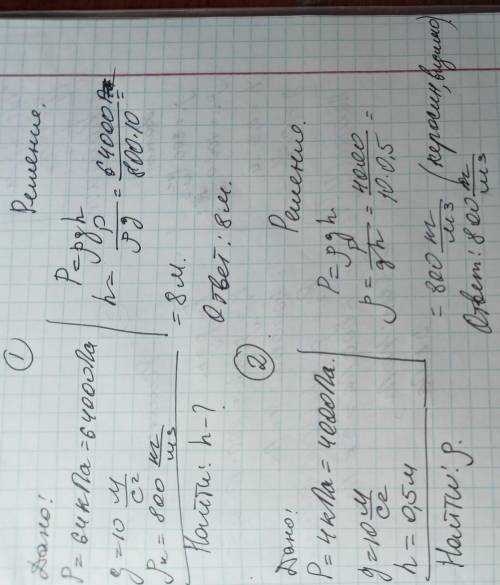 ①
Дано:
P = 64 кПа = 64000 Па
g = 10 м/с²
ρк = 800 кг/м³
Найти: h - ?
Решение.
P = ρgh
h = P/ρg = 64000/800·10 =
= 8 м.
Ответ: 8 м.
②
Дано:
P = 4 кПа = 4000 Па.
g = 10 м/с²
h = 0,5 м
Найти: ρ.
Решение.
P = ρgh
ρ = P/gh = 4000/10·0,5 =
= 800 кг/м³ (керосин, видимо).
Ответ: 800 кг/м³